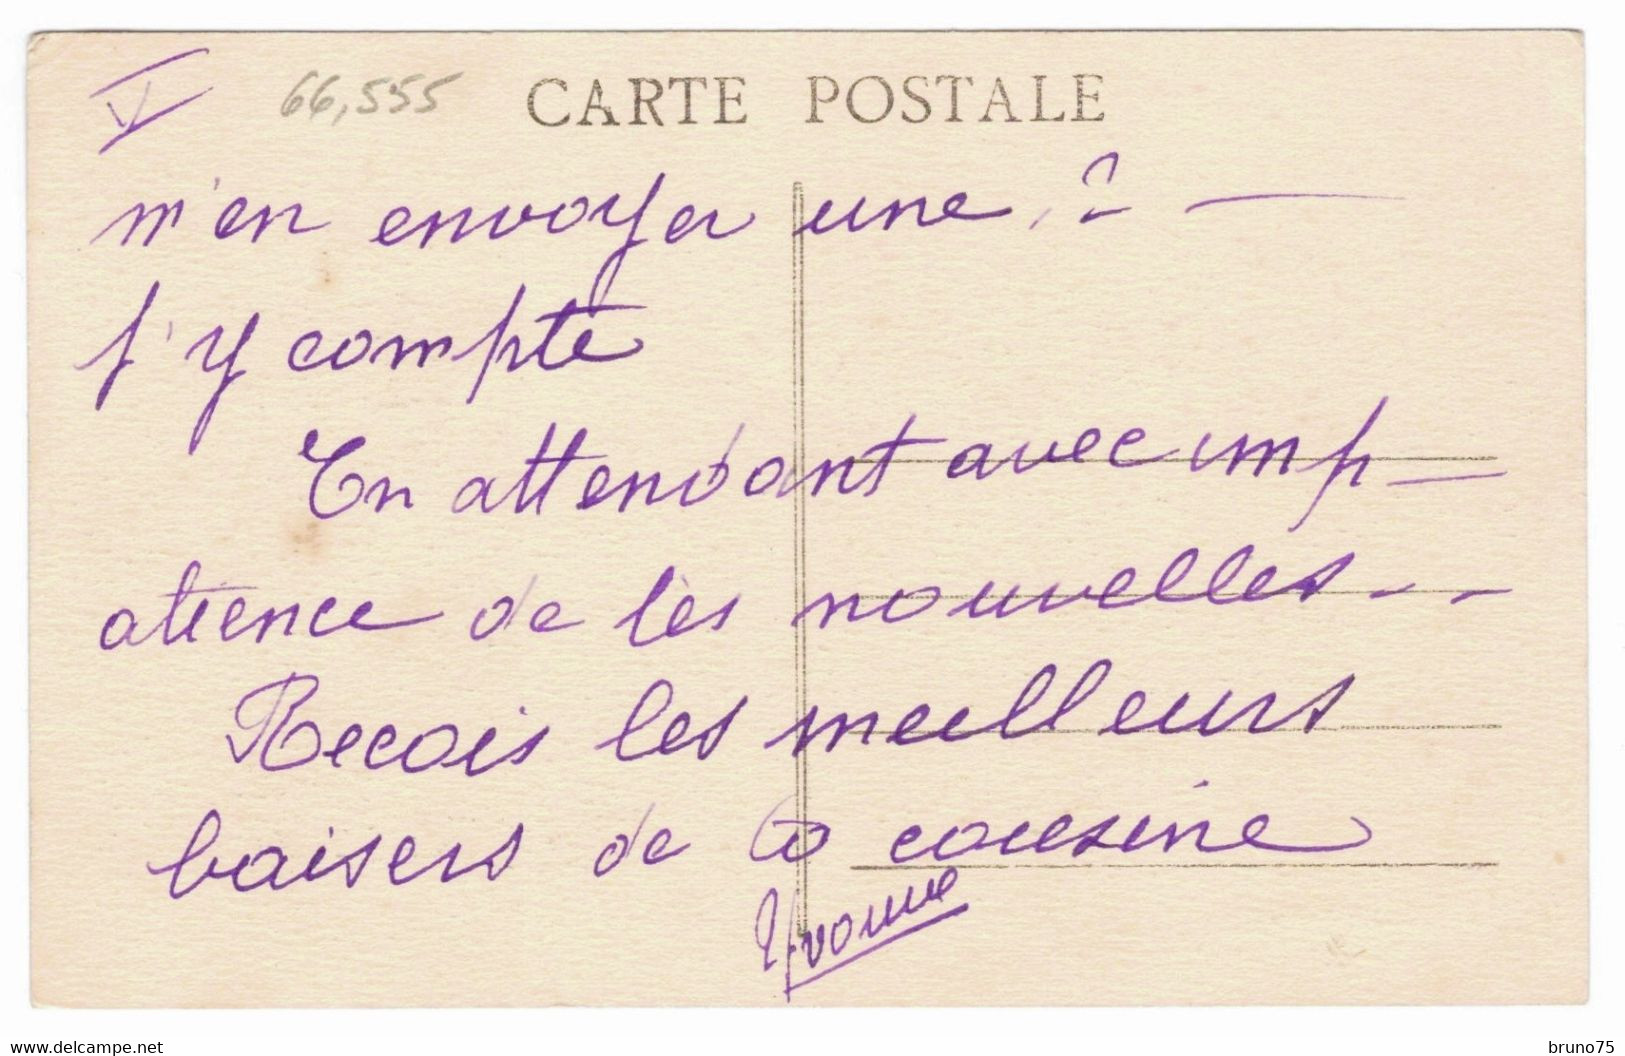 V 66,555 CARTE POSTALE
m'en envoyer une ? —
j'y compte
En attendant avec imp—
atience de tes nouvelles - -
Recois les meilleurs
baisers de ta cousine
Yvonne
www.delcampe.net bruno75